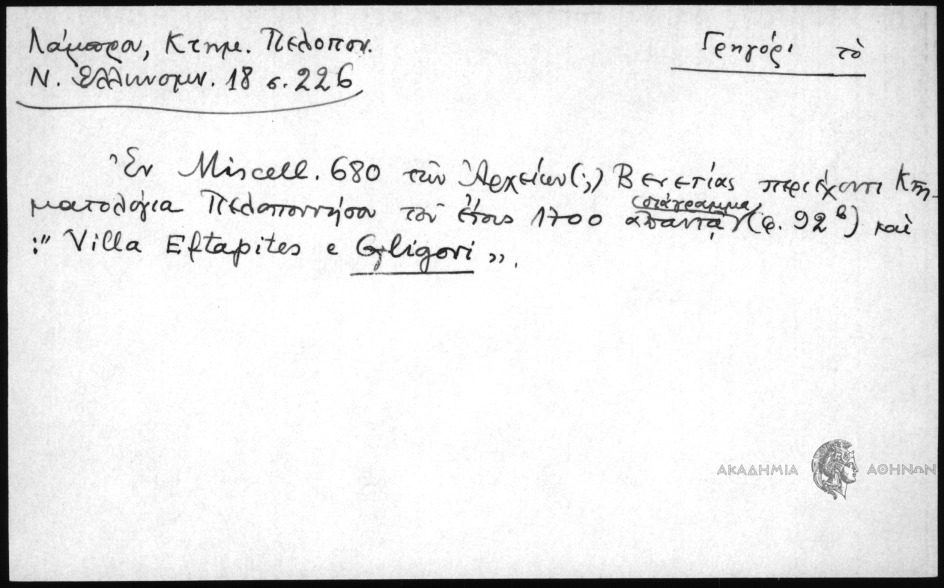 Λάμπρου, Κτημ. Πελοπον.
Ν. Ἑλληνομν. 18 σ. 226
Γρηγόρι τὸ
Ἐν Miscell. 680 τῶν Ἀρχείων(;) Βενετίας περιέχοντι Κτη-
ματολόγια Πελοποννήσου τοῦ ἔτους 1700 ἀπαντᾷ (φ. 92β) καὶ
:" Villa Eftapites e Gligori ».
ΑΚΑΔΗΜΙΑ ΑΘΗΝΩΝ